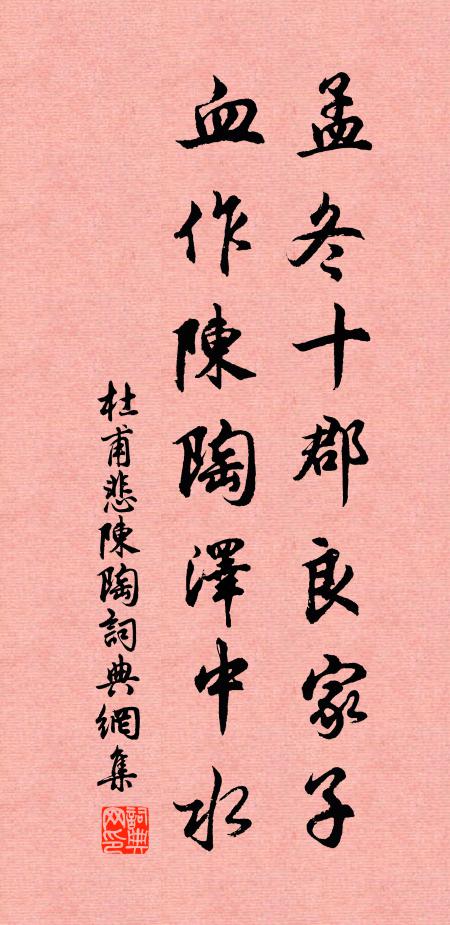 孟冬十郡良家子
血作陳陶澤中水
杜甫悲陳陶詞典網集
詞典网印